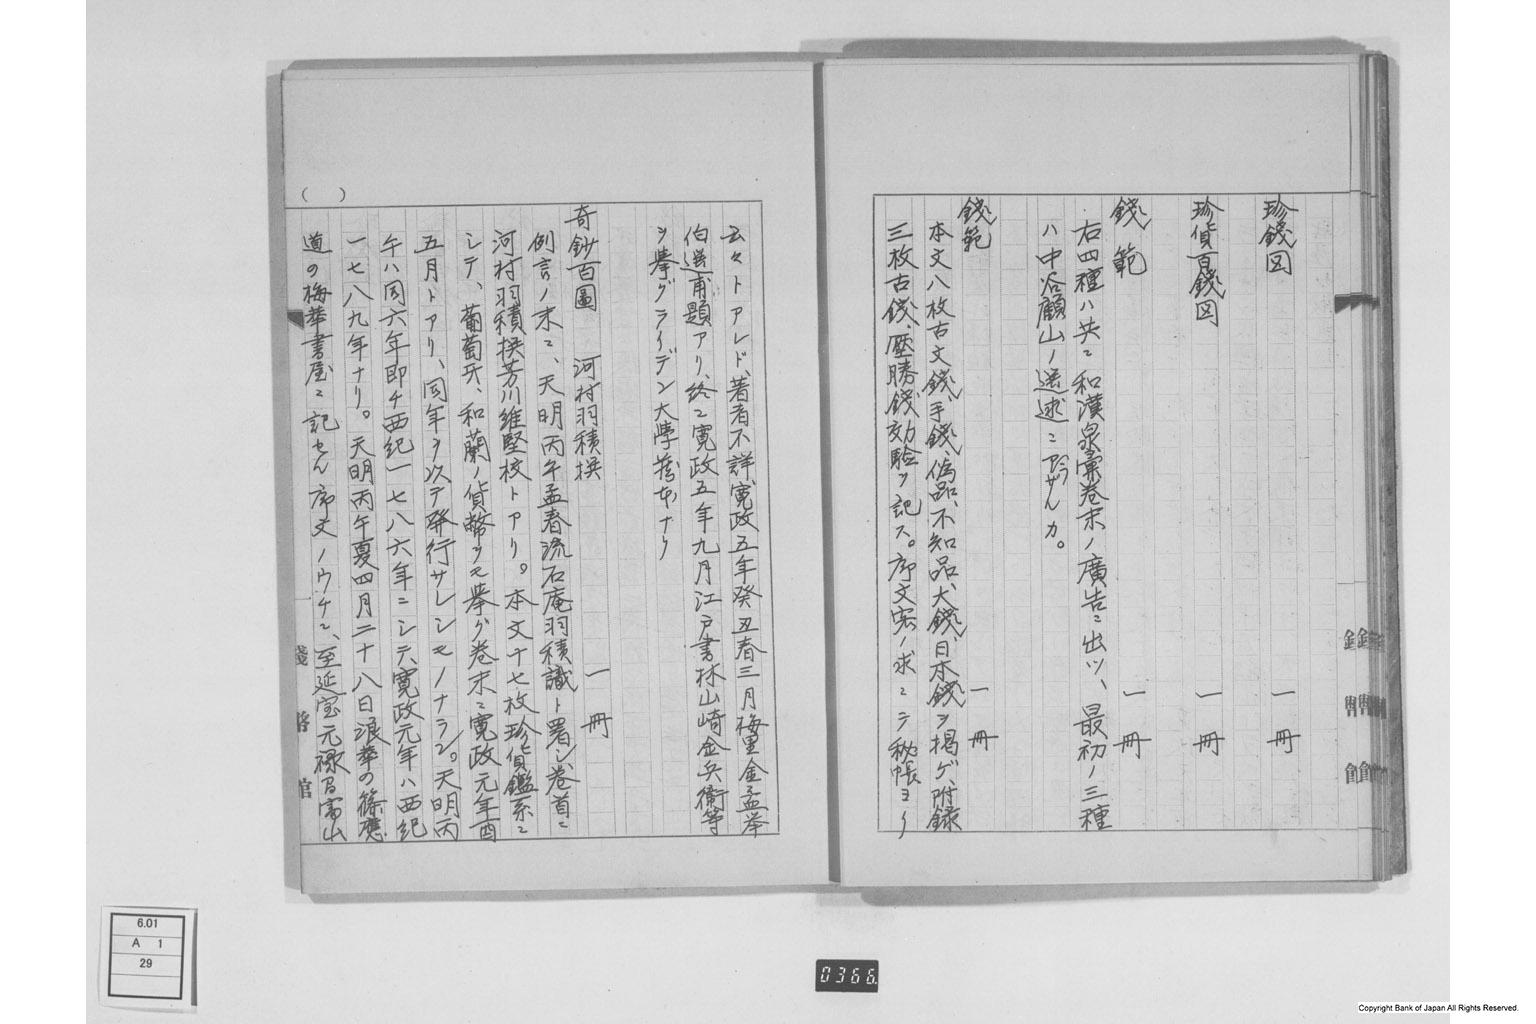 珍錢図 一冊
珍貨百錢図 一冊
錢範 一冊
右四種ハ共ニ和漢泉彙巻末ノ廣告ニ出ヅ、最初ノ三種
ハ中谷顧山ノ選述ニアラザルカ。
錢範 一冊
本文八枚古文錢、手錢、偽品、不知品、大錢、日本錢ヲ掲ゲ、附録
三枚古錢、壓勝錢効驗ヲ記ス。序文宏ノ求ニテ秘帳ヨリ
云々トアレド、著者不詳、寛政五年癸丑春三月梅里金孟举
伯選甫題アリ、終ニ寛政五年九月江戸書林山崎金兵衛等
ヲ擧グライデン大學藏本ナリ
奇鈔百圖 河村羽積撰 一冊
例言ノ末ニ、天明丙午孟春流石庵羽積識ト署シ巻首ニ
河村羽積撰芳川維堅校トアリ。本文十七枚珍貨鑑系ニ
シテ、葡萄牙、和蘭ノ貨幣ヲモ擧グ巻末ニ寛政元年酉
五月トアリ、同年ヲ次デ發行サレシモノナラン。天明丙
午ハ同六年即チ西紀一七八六年ニシテ、寛政元年ハ西紀
一七八九年ナリ。天明丙午夏四月二十八日浪華の篠應
道の梅華書屋ニ記せん序文ノウチニ、至延宝元禄間富山
( )
錢幣館
6.01
A 1
29
0366
Copyright Bank of Japan All Rights Reserved.